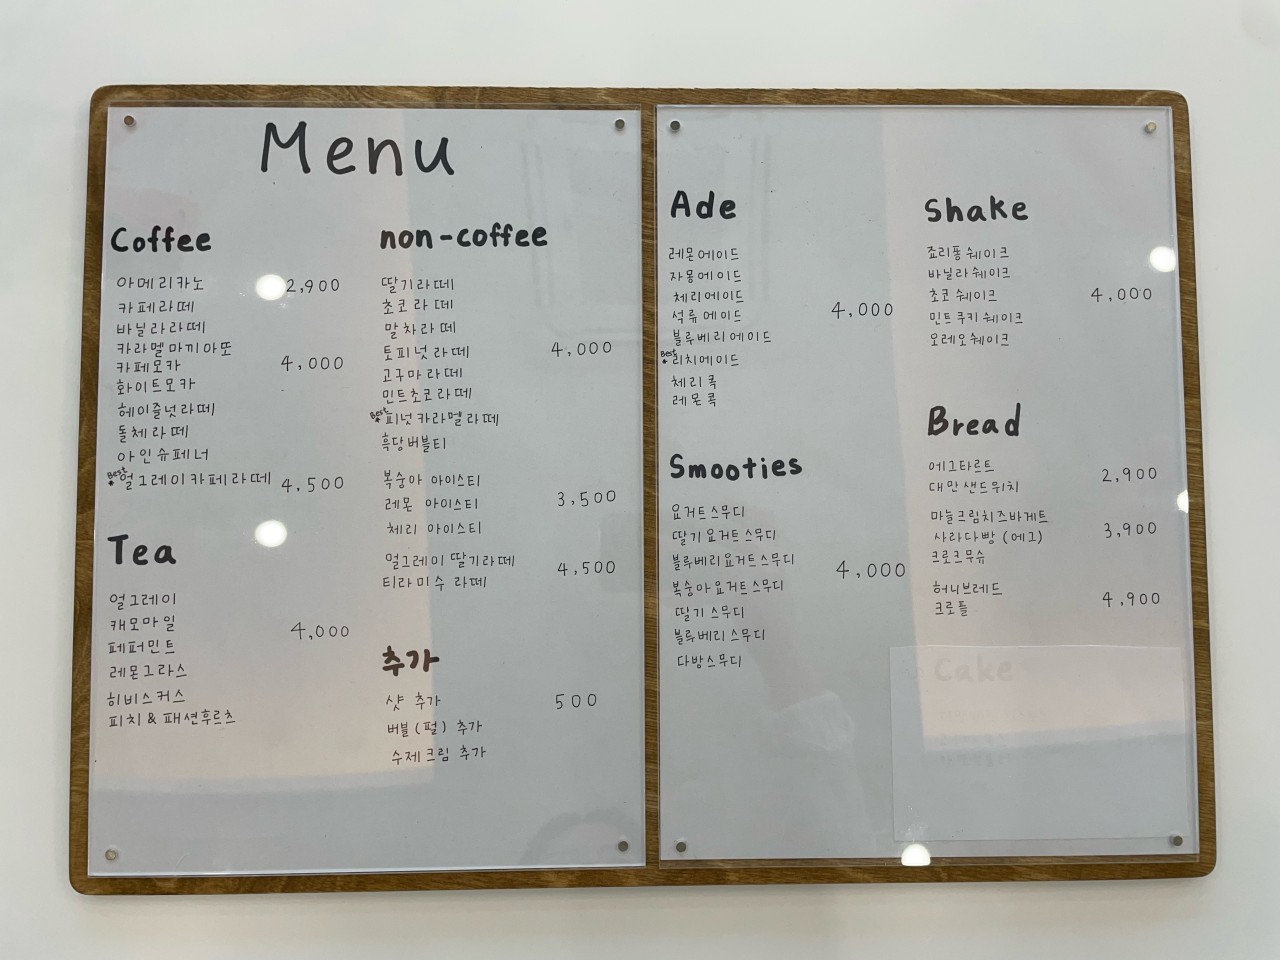 Menu
Coffee
아메리카노 2,900
카페라떼
바닐라라떼
카라멜마끼아또
카페모카 4,000
화이트모카
헤이즐넛라떼
돌체라떼
아인슈페너
Best 얼그레이카페라떼 4,500
Tea
얼그레이
캐모마일
페퍼민트 4,000
레몬그라스
히비스커스
피치&패션후르츠
non-coffee
딸기라떼
초코라떼
말차라떼
토피넛라떼 4,000
고구마라떼
민트초코라떼
Best 피넛카라멜라떼
흑당버블티
복숭아 아이스티
레몬 아이스티 3,500
체리 아이스티
얼그레이딸기라떼 4,500
티라미수 라떼
추가
샷 추가 500
버블(펄) 추가
수제크림 추가
Ade
레몬에이드
자몽에이드
체리에이드
석류에이드 4,000
블루베리에이드
Best 리치에이드
체리콕
레몬콕
Smooties
요거트스무디
딸기요거트스무디
블루베리요거트스무디 4,000
복숭아요거트스무디
딸기스무디
블루베리스무디
다방스무디
Shake
죠리퐁쉐이크
바닐라쉐이크
초코쉐이크 4,000
민트쿠키쉐이크
오레오쉐이크
Bread
에그타르트 2,900
대만샌드위치
마늘크림치즈바게트
사라다빵(에그) 3,900
크로크무슈
허니브레드 4,900
크로플
Cake